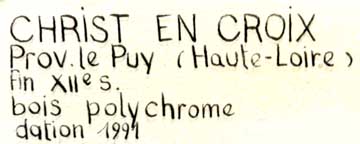 CHRIST EN CROIX
Prov. le Puy (Haute-Loire)
fin XIIe s.
bois polychrome
dation 1991